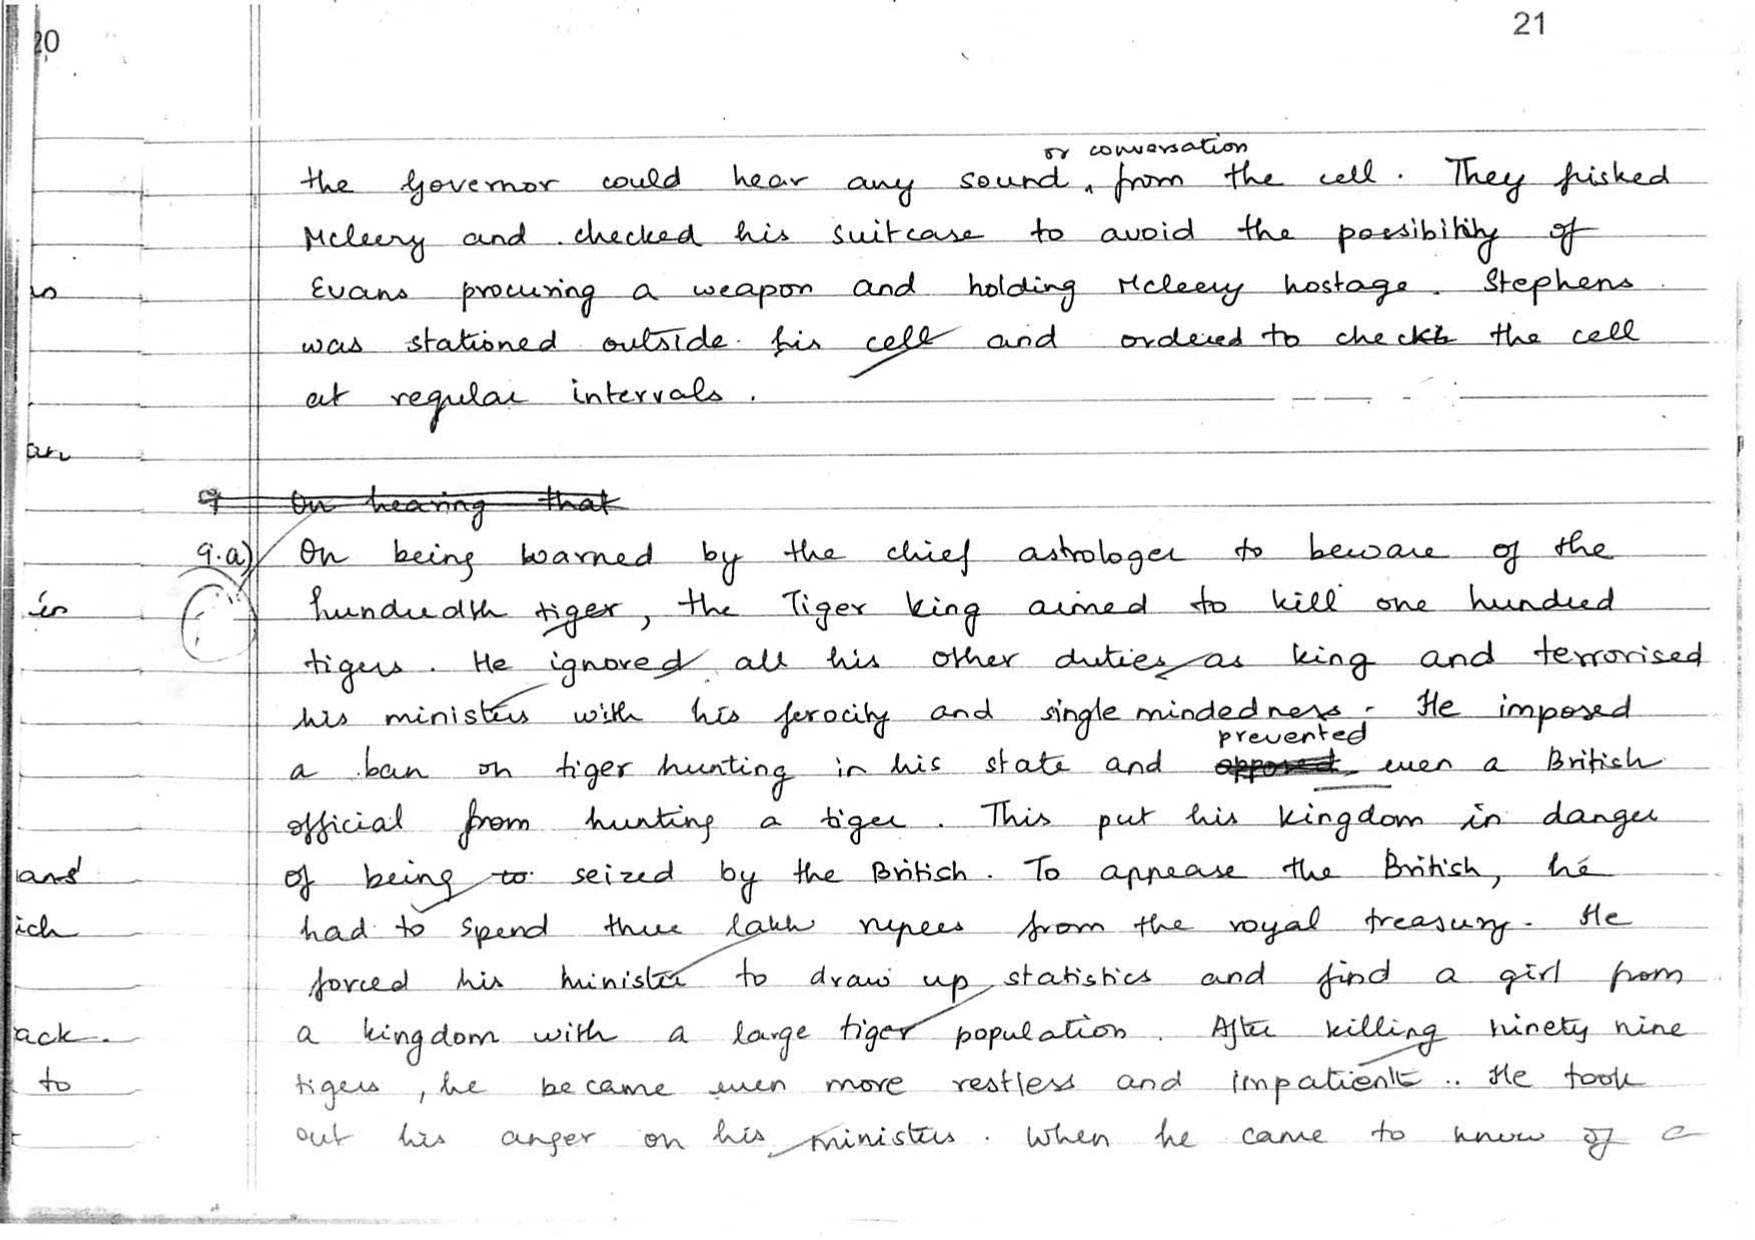 20
21
or conversation
the Governor could hear any sound from the cell. They frisked
Mcleery and checked his suitcase to avoid the possibility of
Evans procuring a weapon and holding Mcleery hostage. Stephens
was stationed outside his cell and ordered to check the cell
at regular intervals.
On hearing that
9.a) On being warned by the chief astrologer to beware of the
hundredth tiger, the Tiger king aimed to kill one hundred
tigers. He ignored all his other duties as king and terrorised
his ministers with his ferocity and single mindedness. He imposed
prevented
a ban on tiger hunting in his state and opposed even a British
official from hunting a tiger. This put his kingdom in danger
of being to seized by the British. To appease the British, he
had to spend three lakh rupees from the royal treasury. He
forced his minister to draw up statistics and find a girl from
a kingdom with a large tiger population. After killing ninety nine
tigers, he became even more restless and impatient.. He took
out his anger on his ministers. When he came to know of a
an
in
and
ich
ack.
to